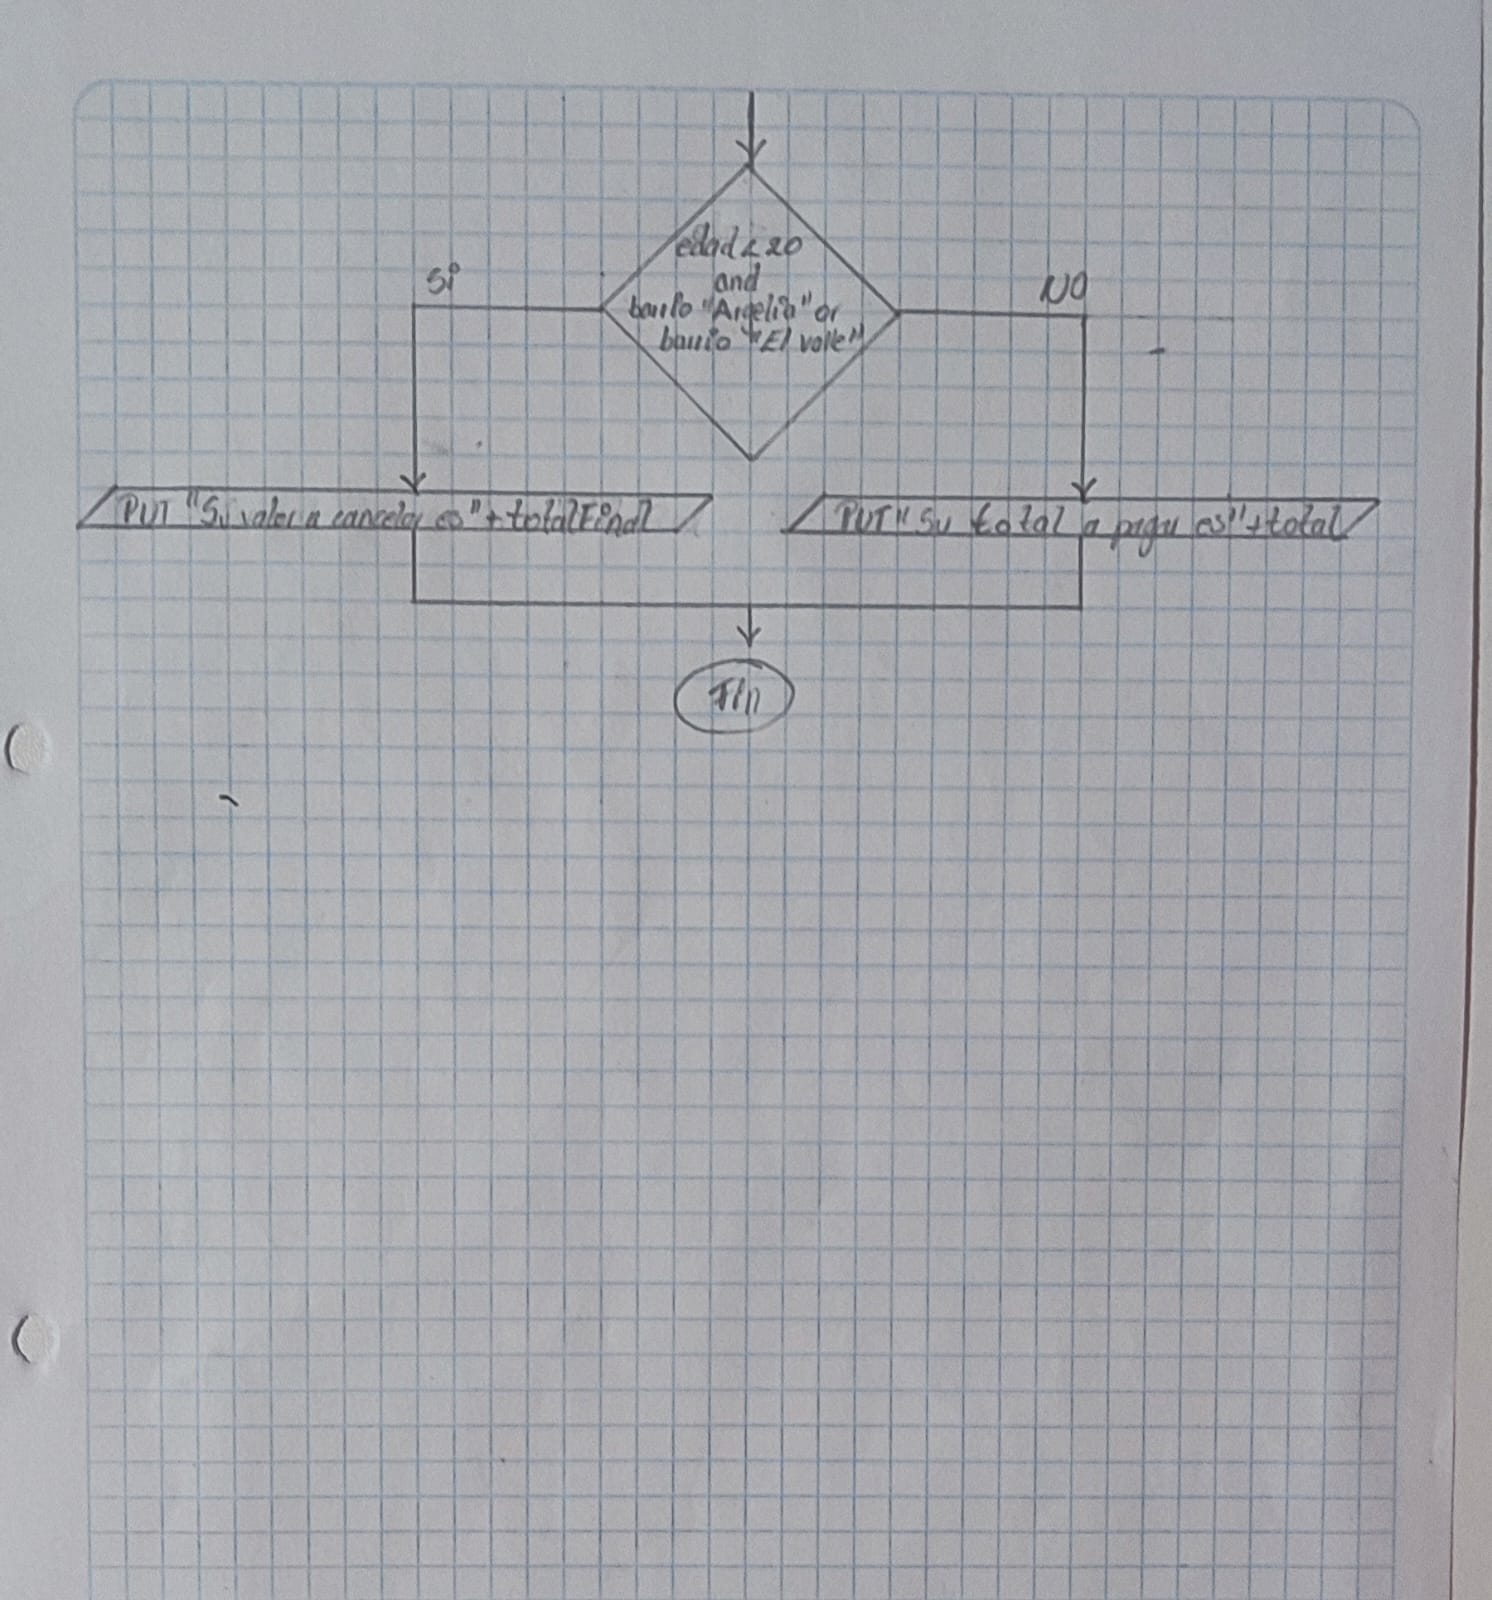 edad < 20
and
Si
NO
barrio "Argelia" or
barrio "El valle"
PUT "Su valor a cancelar es" + totalFinal
PUT "Su total a pagar es" + total
Fin